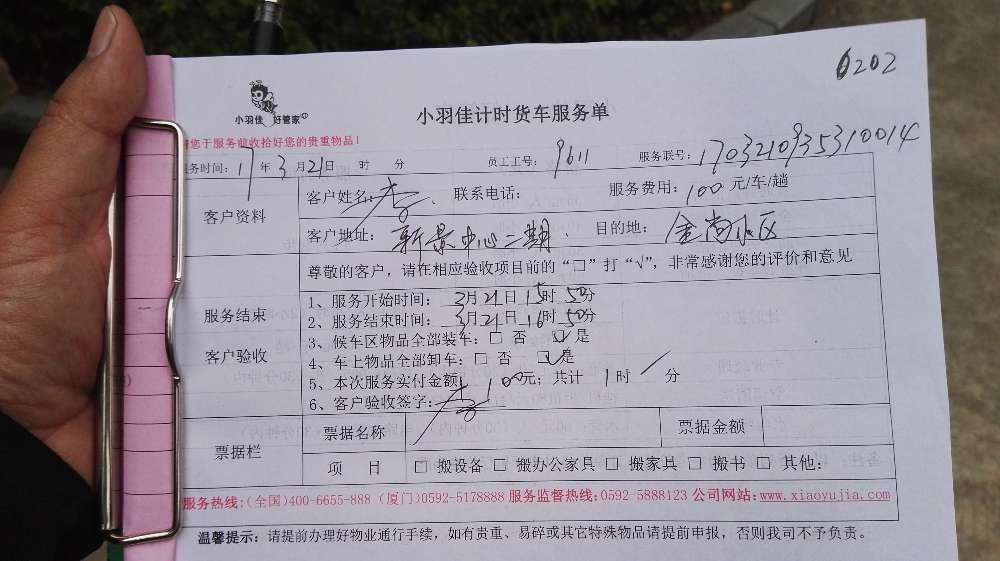 6202
小羽佳 好管家
小羽佳计时货车服务单
您于服务前收拾好您的贵重物品！
服务时间：17年3月21日 时 分 员工工号：9611 服务联号：170321093531 0014
客户资料
客户姓名：李 联系电话： 服务费用：100元/车/趟
客户地址：新景中心二期 目的地：金尚小区
尊敬的客户，请在相应验收项目前的“□”打“√”，非常感谢您的评价和意见
服务结束
客户验收
1、服务开始时间：3月21日15时50分
2、服务结束时间：3月21日16时50分
3、候车区物品全部装车：□ 否 ☑ 是
4、车上物品全部卸车：□ 否 ☑ 是
5、本次服务实付金额：100元；共计 1时 / 分
6、客户验收签字：李
票据栏
票据名称 票据金额
项 目 □ 搬设备 □ 搬办公家具 □ 搬家具 □ 搬书 □ 其他：
服务热线：(全国)400-6655-888 (厦门)0592-5178888 服务监督热线：0592 5888123 公司网站：www.xiaoyujia.com
温馨提示：请提前办理好物业通行手续，如有贵重、易碎或其它特殊物品请提前申报，否则我司不予负责。